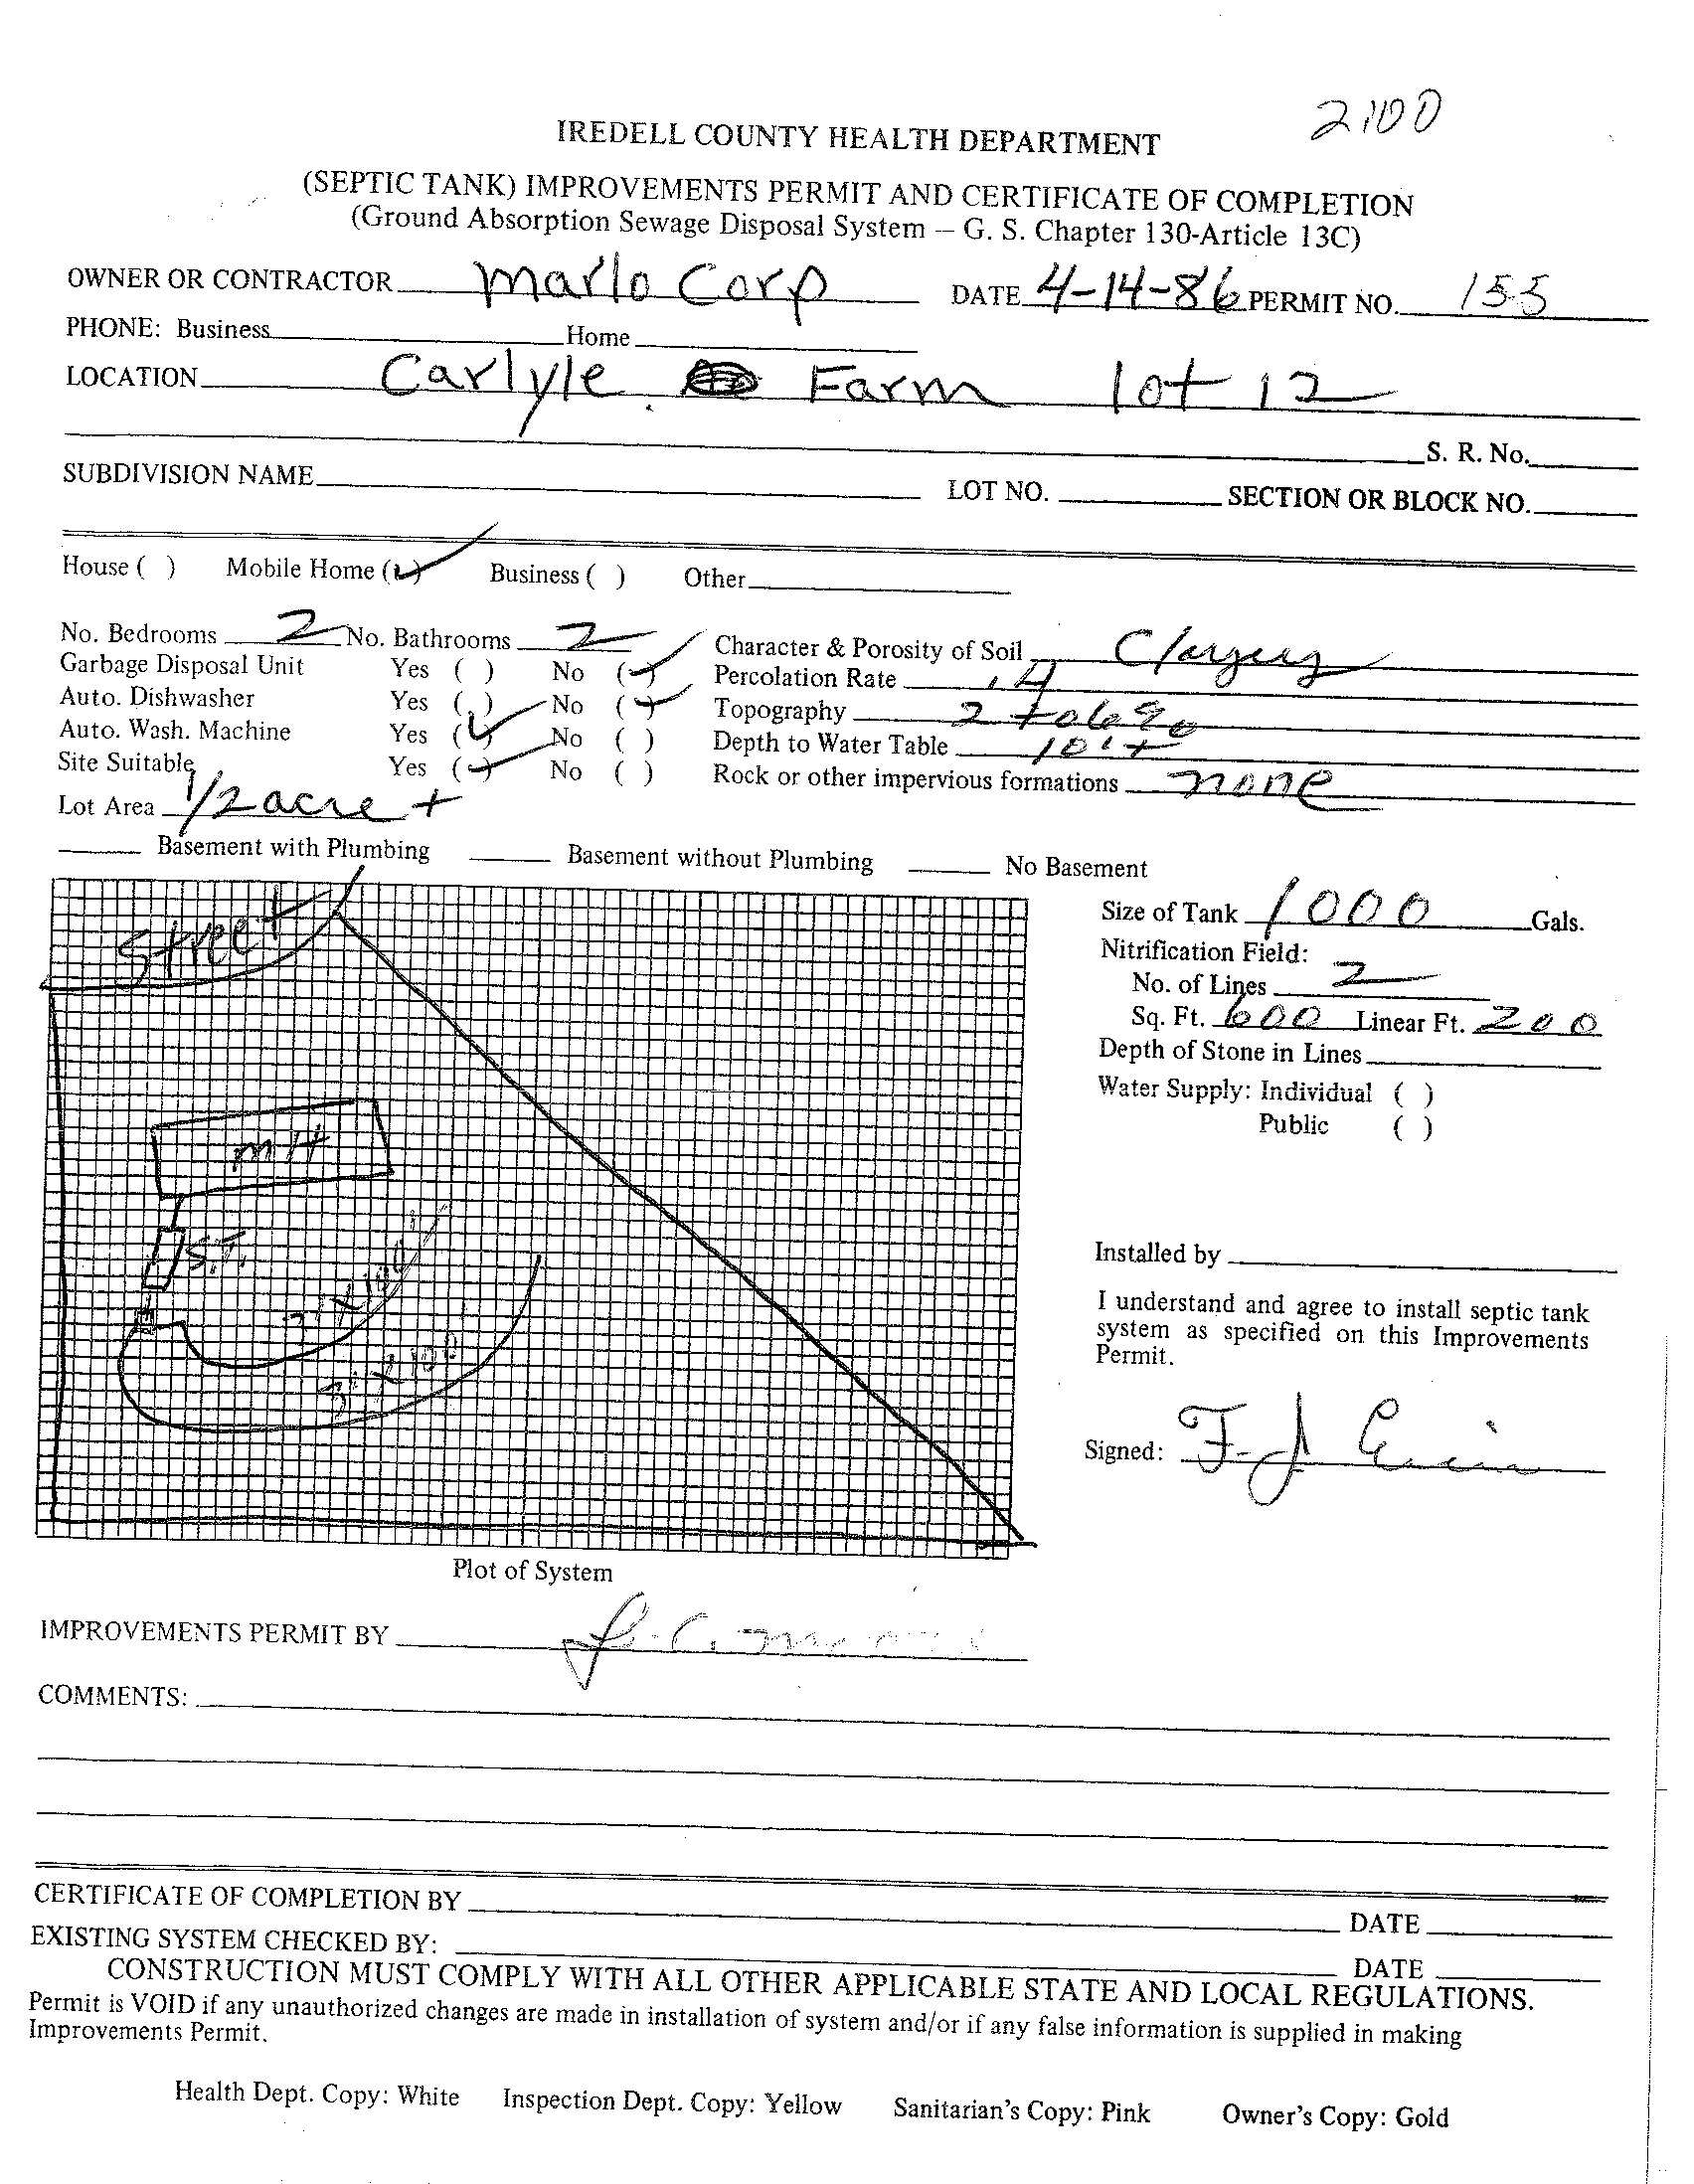 2100
IREDELL COUNTY HEALTH DEPARTMENT
(SEPTIC TANK) IMPROVEMENTS PERMIT AND CERTIFICATE OF COMPLETION
(Ground Absorption Sewage Disposal System – G. S. Chapter 130-Article 13C)
OWNER OR CONTRACTOR Marlo Corp DATE 4-14-86 PERMIT NO. 155
PHONE: Business Home
LOCATION Carlyle Farm lot 12
S. R. No.
SUBDIVISION NAME LOT NO. SECTION OR BLOCK NO.
House ( ) Mobile Home (✓) Business ( ) Other
No. Bedrooms 2 No. Bathrooms 2 Character & Porosity of Soil
Garbage Disposal Unit Yes ( ) No (✓) Percolation Rate .4
Auto. Dishwasher Yes ( ) No (✓) Topography 2 to 6%
Auto. Wash. Machine Yes (✓) No ( ) Depth to Water Table 10'+
Site Suitable Yes (✓) No ( ) Rock or other impervious formations none
Lot Area 1/2 acre +
Basement with Plumbing Basement without Plumbing No Basement
Street
MH
S.T.
3'X100'
3'X100
Plot of System
Size of Tank 1000 Gals.
Nitrification Field:
No. of Lines 2
Sq. Ft. 600 Linear Ft. 200
Depth of Stone in Lines
Water Supply: Individual ( )
Public ( )
Installed by
I understand and agree to install septic tank
system as specified on this Improvements
Permit.
Signed: F.J.
IMPROVEMENTS PERMIT BY
COMMENTS:
CERTIFICATE OF COMPLETION BY DATE
EXISTING SYSTEM CHECKED BY: DATE
CONSTRUCTION MUST COMPLY WITH ALL OTHER APPLICABLE STATE AND LOCAL REGULATIONS.
Permit is VOID if any unauthorized changes are made in installation of system and/or if any false information is supplied in making
Improvements Permit.
Health Dept. Copy: White Inspection Dept. Copy: Yellow Sanitarian's Copy: Pink Owner's Copy: Gold